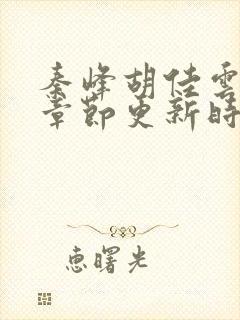 秦峰胡佳雲
章節更新時
惠曙光